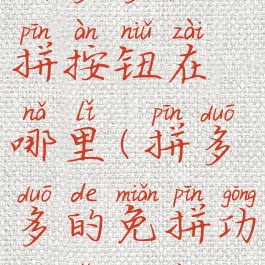 pīn àn niǔ zài
拼按钮在
nǎ lǐ pīn duō
哪里(拼多
duō de miǎn pīn gōng
多的免拼功